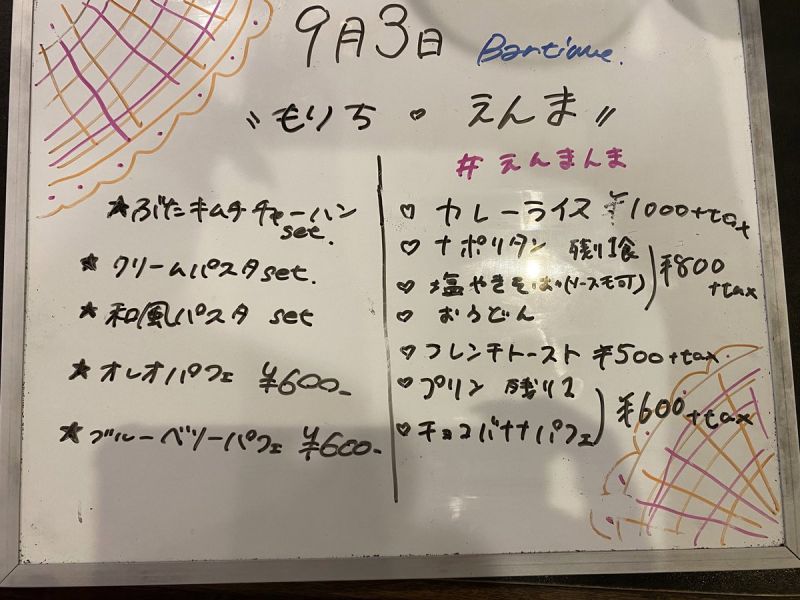 9月3日 Bartique.
〃もりち・えんま〃
#えんまんま
★ぶたキムチチャーハン
set.
★クリームパスタset.
★和風パスタ set
★オレオパフェ ¥600-
★ブルーベリーパフェ ¥600-
♡カレーライス ¥1000+tax
♡ナポリタン 残り1食
♡塩やきそば(ソースモ可)
¥800
+tax
♡おうどん
♡フレンチトースト ¥500+tax.
♡プリン 残り2
♡チョコバナナパフェ
¥600+tax